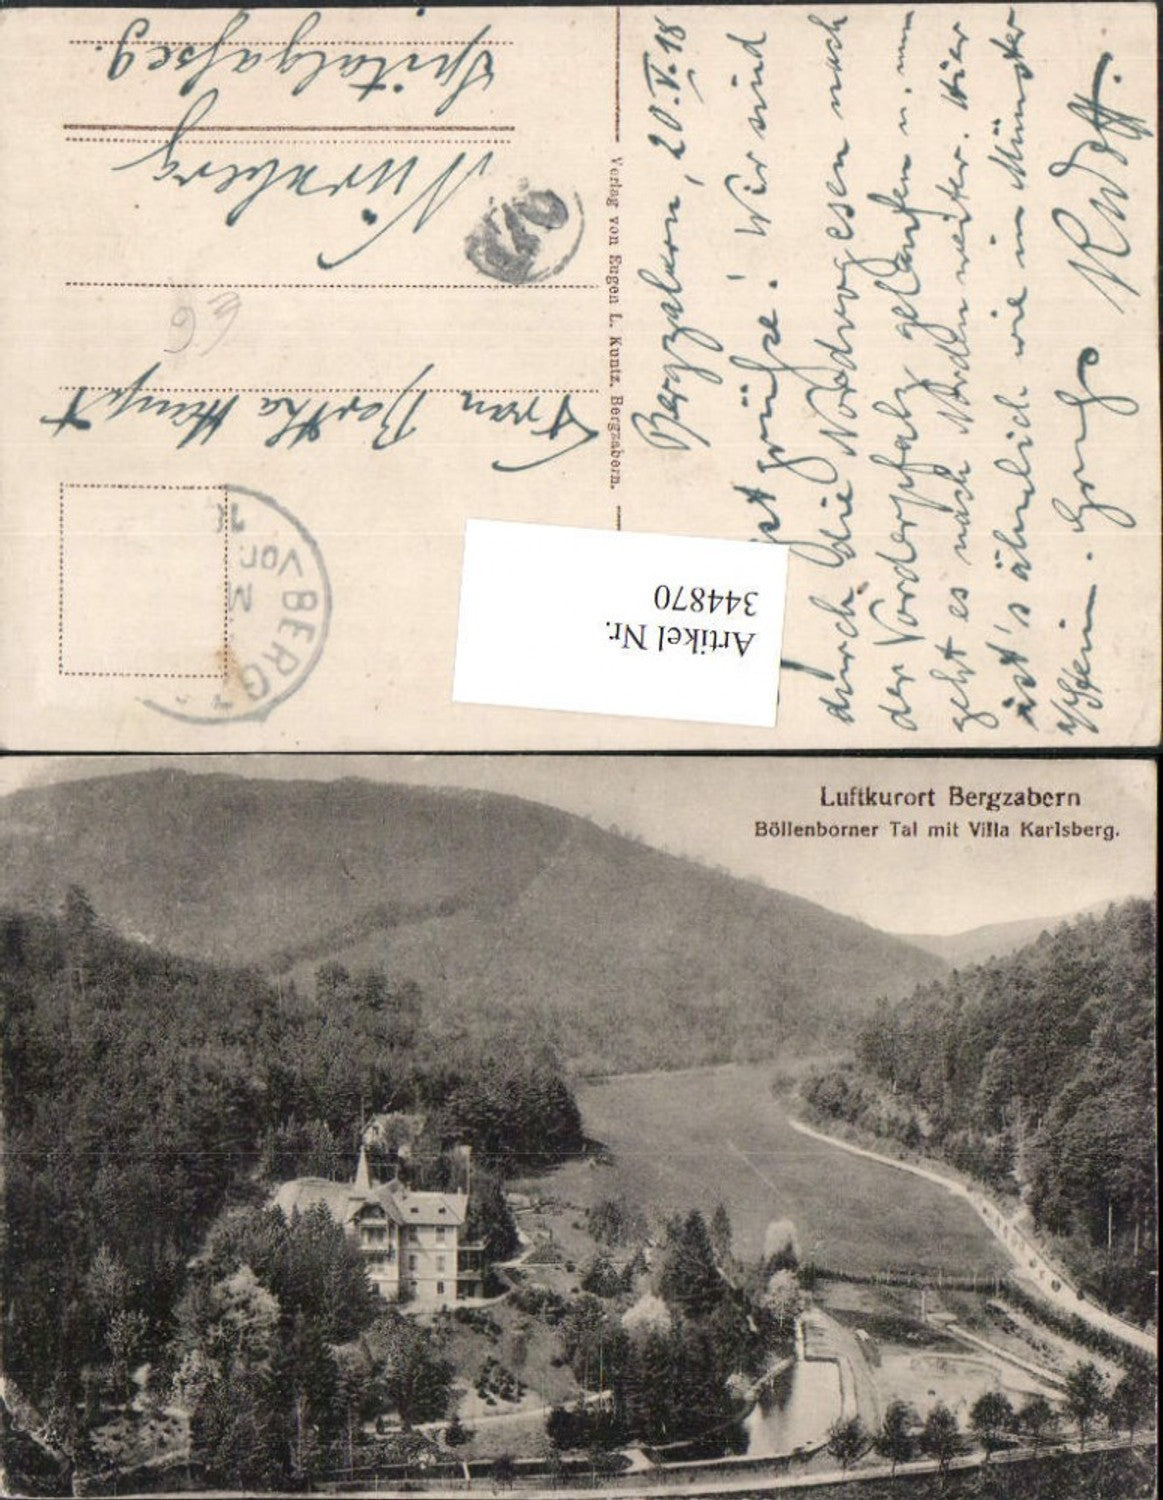 Bergzabern, 20.V.18
grüße! Wir sind
durch die Nordvogesen nach
der Vorderpfalz gelaufen u. nun
geht es nach Norden weiter. Hier
ist's ähnlich wie in Münster
Gruß Rudolf.
Verlag von Eugen L. Kuntz, Bergzabern.
Frau Bertha
Nürnberg
Spitalgasse 9.
BERG
Artikel Nr.
344870
Luftkurort Bergzabern
Böllenborner Tal mit Villa Karlsberg.